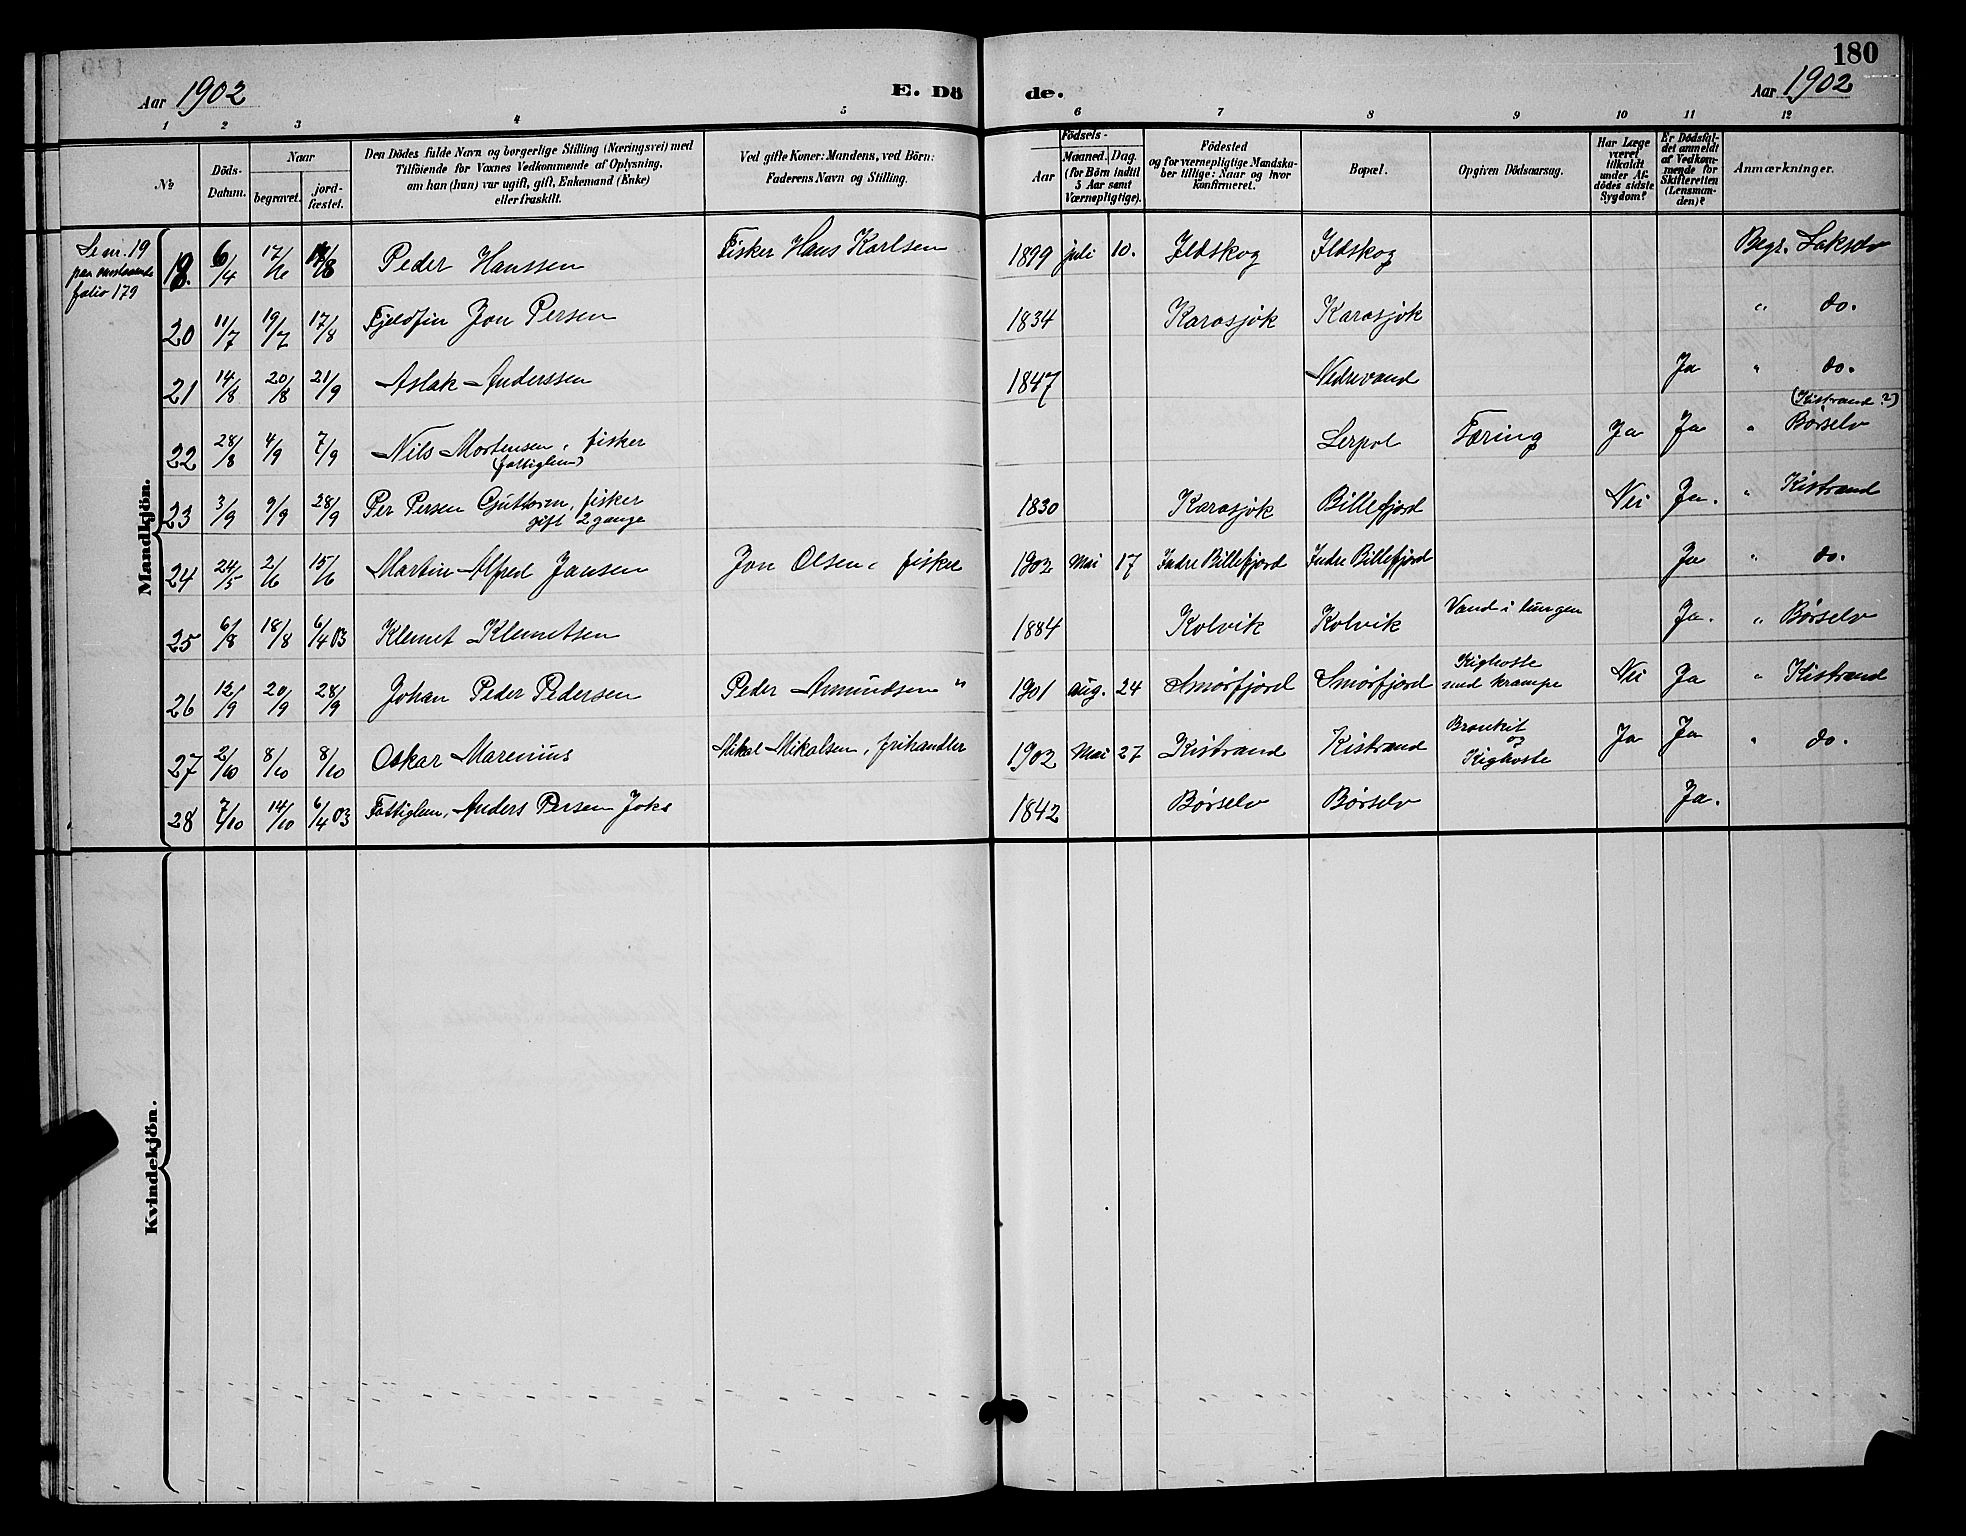 180
Aar 1902
E. Dö
de.
Aar 1902
1 2 3 4 5 6 7 8 9 10 11 12
No
Döds-
Datum.
Naar
begravet.
jord-
fæstet.
Den Dödes fulde Navn og borgerlige Stilling (Næringsvei) med
Tilföiende for Voxnes Vedkommende af Oplysning,
om han (hun) var ugift, gift, Enkemand (Enke)
eller fraskilt.
Ved gifte Koner: Mandens, ved Börn:
Faderens Navn og Stilling.
Födsels-
Aar
Maaned. Dag.
(for Börn indtil
5 Aar samt
Værnepligtige).
Födested
og for værnepligtige Mandska-
ber tillige: Naar og hvor
konfirmeret.
Bopæl.
Opgiven Dödsaarsag.
Har Læge
været
tilkaldt
under Af-
dödes sidste
Sygdom?
Er Dödsfal-
det anmeldt
af Vedkom-
mende for
Skifteretten
(Lensman-
den)?
Anmærkninger.
Se nr. 19
paa
folio 179
Mandkjön.
18. 6/4 17/6 17/8 Peder Hanssen Fisker Hans Karlsen 1899 juli 10. Ildskog Ildskog Begr. Lakselv
20 11/7 19/7 17/8 Fjeldfin Jon Persen 1834 Karasjok Karasjok " do.
21 14/8 20/8 21/9 Aslak Anderssen 1847 Nedrevand Ja " do.
(Kistrand?)
22 28/8 4/9 7/9 Nils Mortensen, fisker Lerpol Tæring Ja Ja " Børselv
(fattiglem)
23 3/9 9/9 28/9 Per Persen Guttorm, fisker 1830 Karasjok Billefjord Nei Ja. " Kistrand
gift 2 gange
24 24/5 2/6 15/6 Martin Alfred Jansen Jon Olsen, fisker 1902 Mai 17 Indre Billefjord Indre Billefjord Ja " do.
25 6/8 18/8 6/4 03 Klemet Klemetsen 1884 Kolvik Kolvik Vand i lungen Ja. " Børselv
26 12/9 20/9 28/9 Johan Peder Pedersen Peder Amundsen " 1901 aug. 24 Smørfjord Smørfjord Kighoste
med krampe Nei Ja " Kistrand
27 2/10 8/10 8/10 Oskar Marenius Mikal Mikalsen, frihandler 1902 Mai 27 Kistrand Kistrand Bronkit
og
Kighoste Ja Ja " do.
28 7/10 14/10 6/4 03 Fattiglem, Anders Persen Joks 1842 Børselv Børselv Ja.
Kvindekjön.